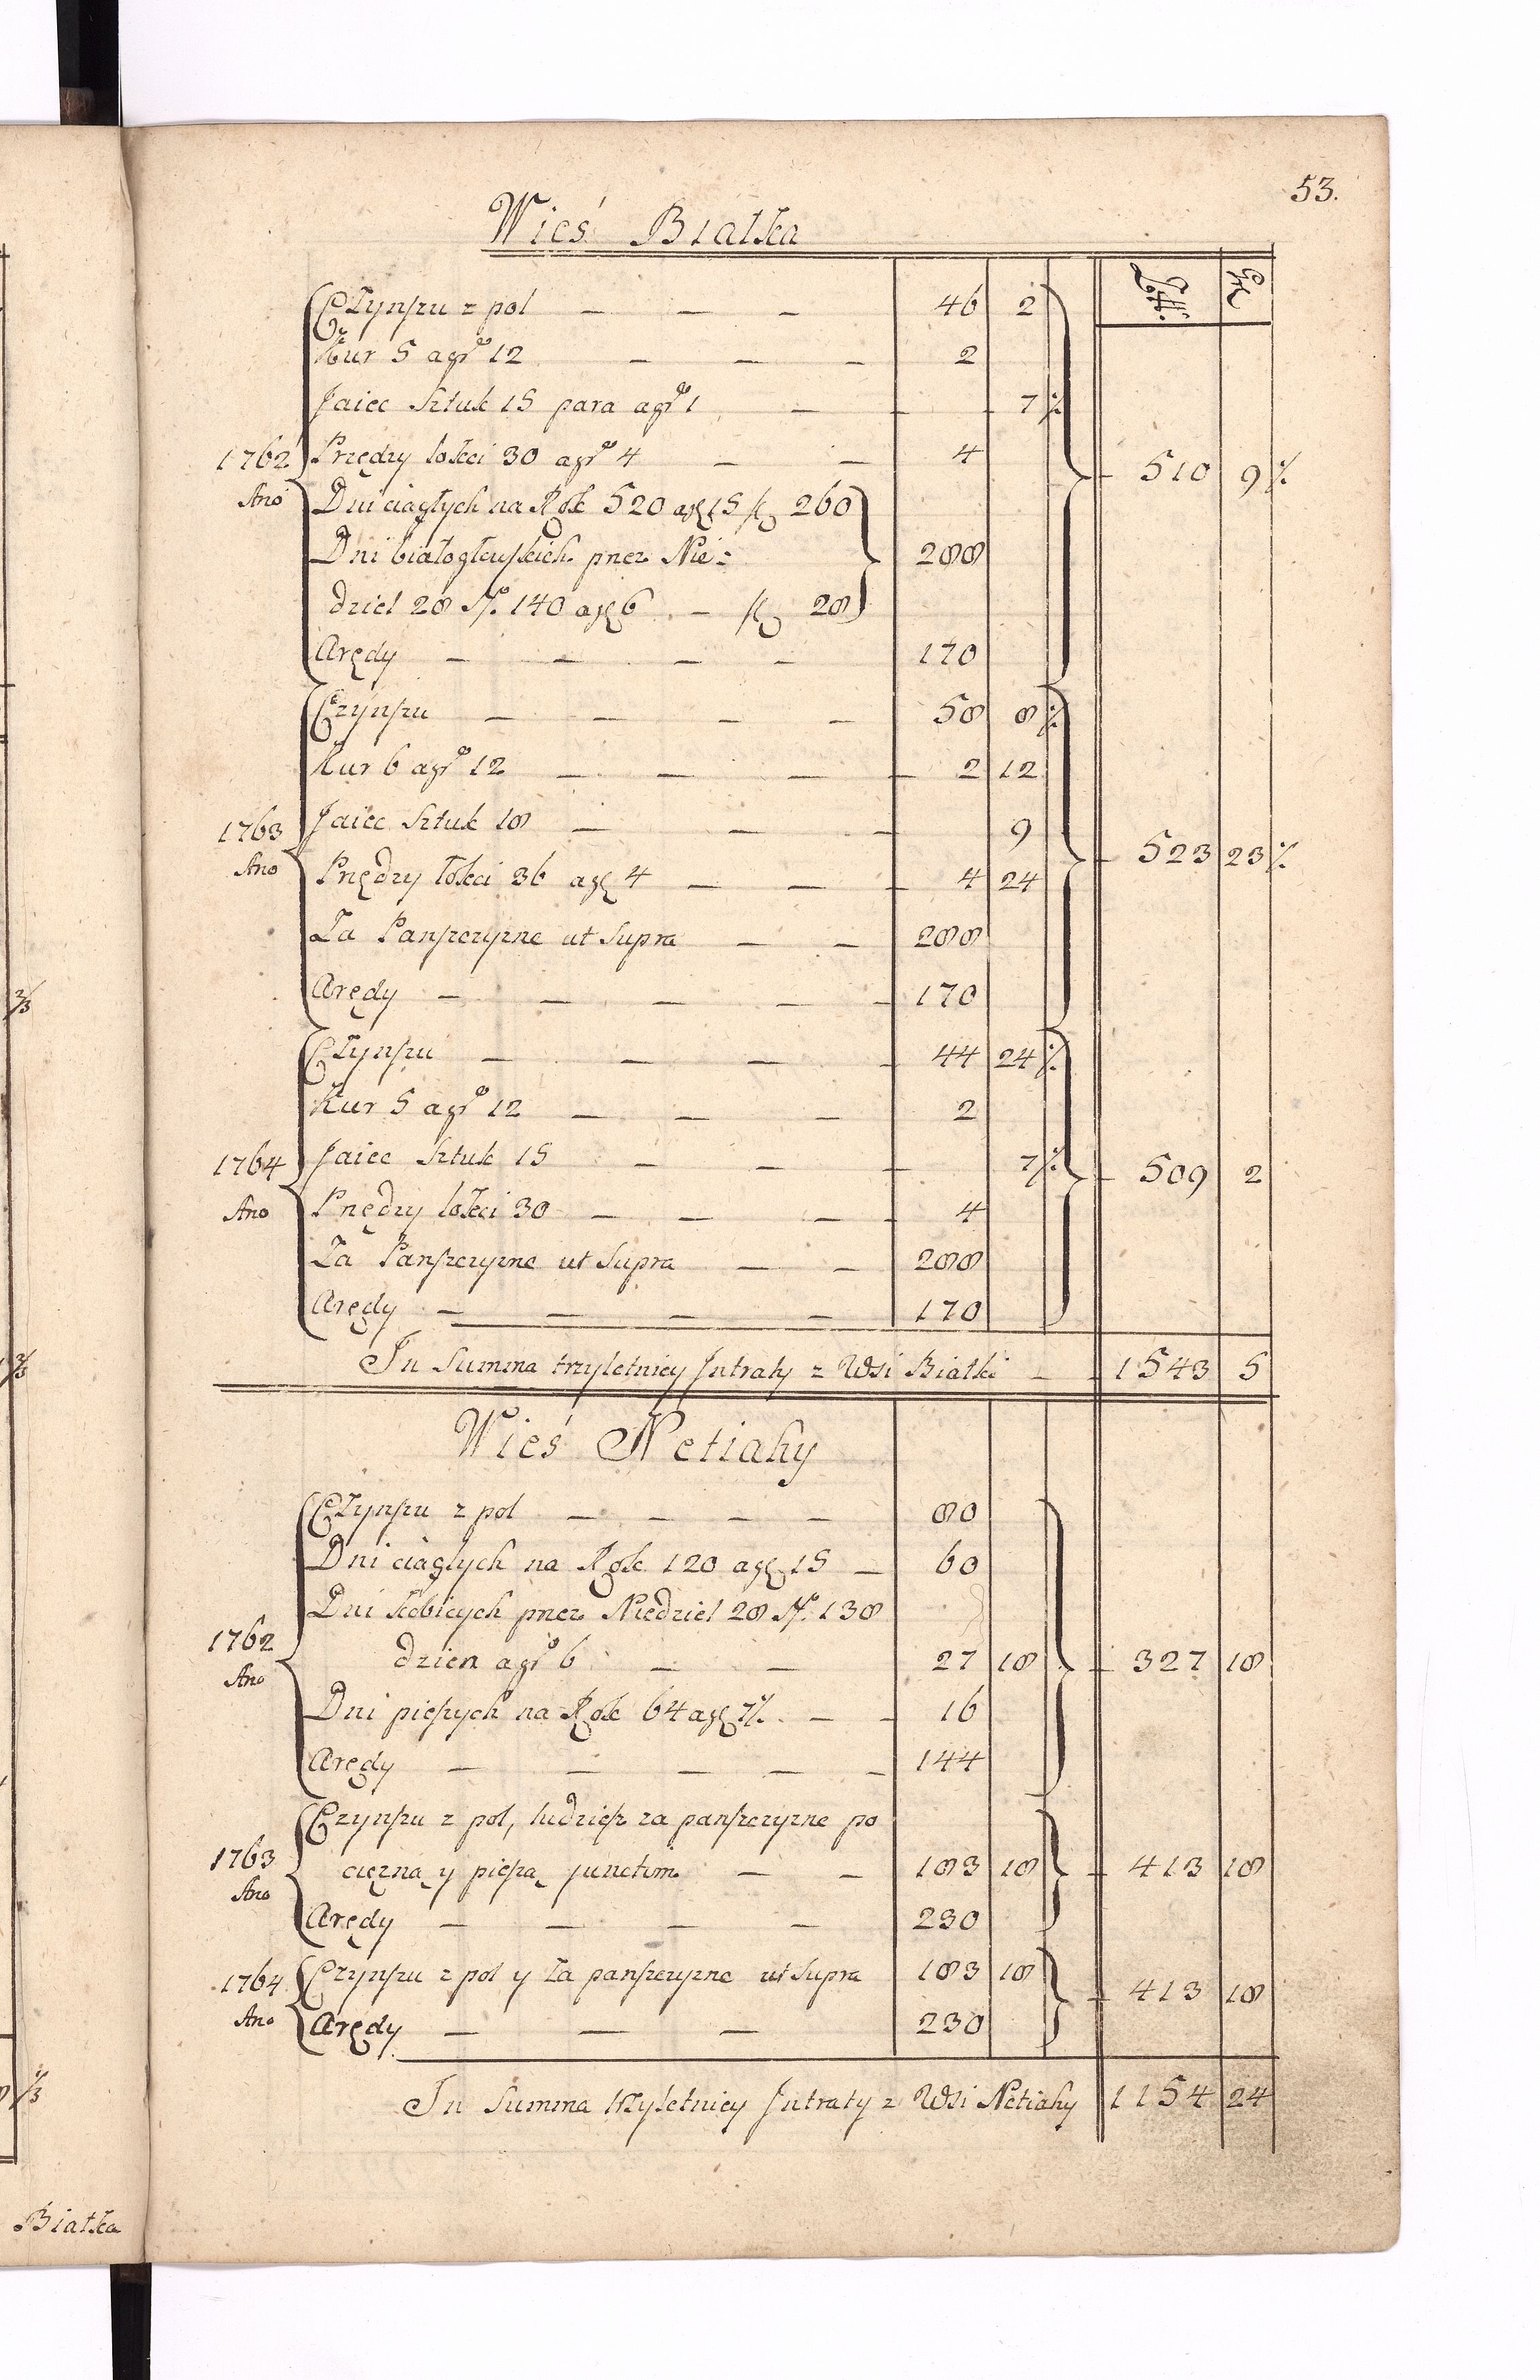 53.
Wieś Białka
Złł: Gr
Czynszu z pol — — — 46 2
Kur 5 a gro 12 — — — 2
Jaiec Sztuk 15 para a gro 1 — — 7 ½
1762 Przędzy łokci 30 a gro 4 — — 4 — 510 9 ½
Ano Dni ciągłych na Rok 520 a gr 15 fl 260
Dni białogłuskich przez Nie= 288
dziel 28 No. 140 a gr 6 — fl 28
Arędy — — — — 170
Czynszu — — — — 58 8 ½
Kur 6 a gro 12 — — — 2 12
1763 Jaiec Sztuk 18 — — — 9
Ano Przędzy łokci 36 a gr 4 — — 4 24 — 523 23 ½
Za Panszczyzne ut Supra — — 288
Arędy — — — — 170
Czynszu — — — 44 24 ½
Kur 5 a gro 12 — — — 2
1764 Jaiec Sztuk 15 — — 7 ½ — 509 2
Ano Przędzy łokci 30 — — — 4
Za Panszczyzne ut Supra — — 288
Arędy — — — — 170
In Summa trzyletniey Intraty z Wsi Białki — 1543 5
Wieś Netiahy
Czynszu z pol — — — — 80
Dni ciągłych na Rok 120 a gr 15 — 60
Dni kobicych przez Niedziel 28 No. 138
1762 dzien a gro 6 — — 27 18 — 327 18
Ano
Dni pieszych na Rok 64 a gr 7 ½ — — 16
Arędy — — — — — 144
Czynszu z pol, tudziesz za panszczyzne po
1763 cięzną y pieszą junctim — — 183 18 — 413 18
Ano
Arędy — — — — 230
1764 Czynszu z pol y za panszczyzne ut Supra 183 18 — 413 18
Ano Arędy — — — 230
In Summa trzyletniey Intraty z Wsi Netiahy 1154 24
Białka